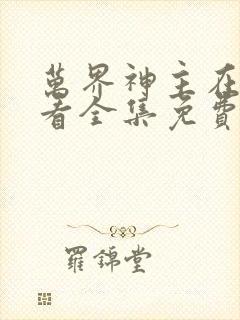 萬界神主在
看全集免費
羅錦堂